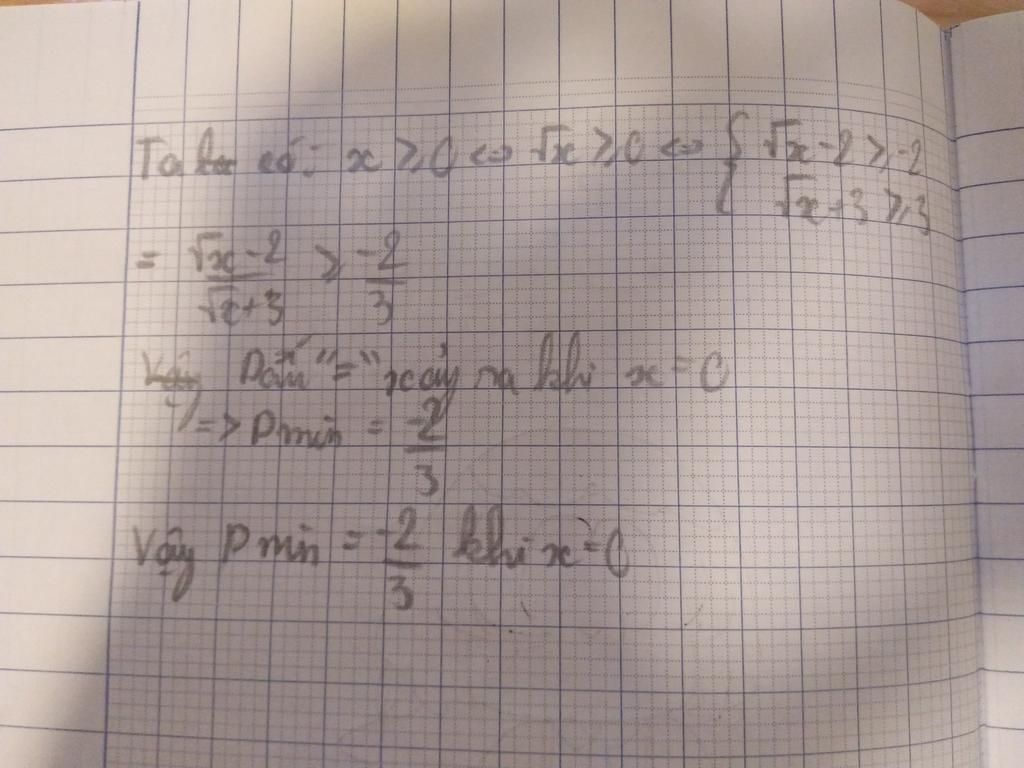 Ta có: x ≥ 0 ⇔ √x ≥ 0 ⇔ { √x - 2 ≥ -2
√x + 3 ≥ 3
= √x - 2 / √x + 3 ≥ -2 / 3
Vậy Dấu "=" xảy ra khi x = 0
=> Pmin = -2 / 3
Vậy Pmin = -2 / 3 khi x = 0